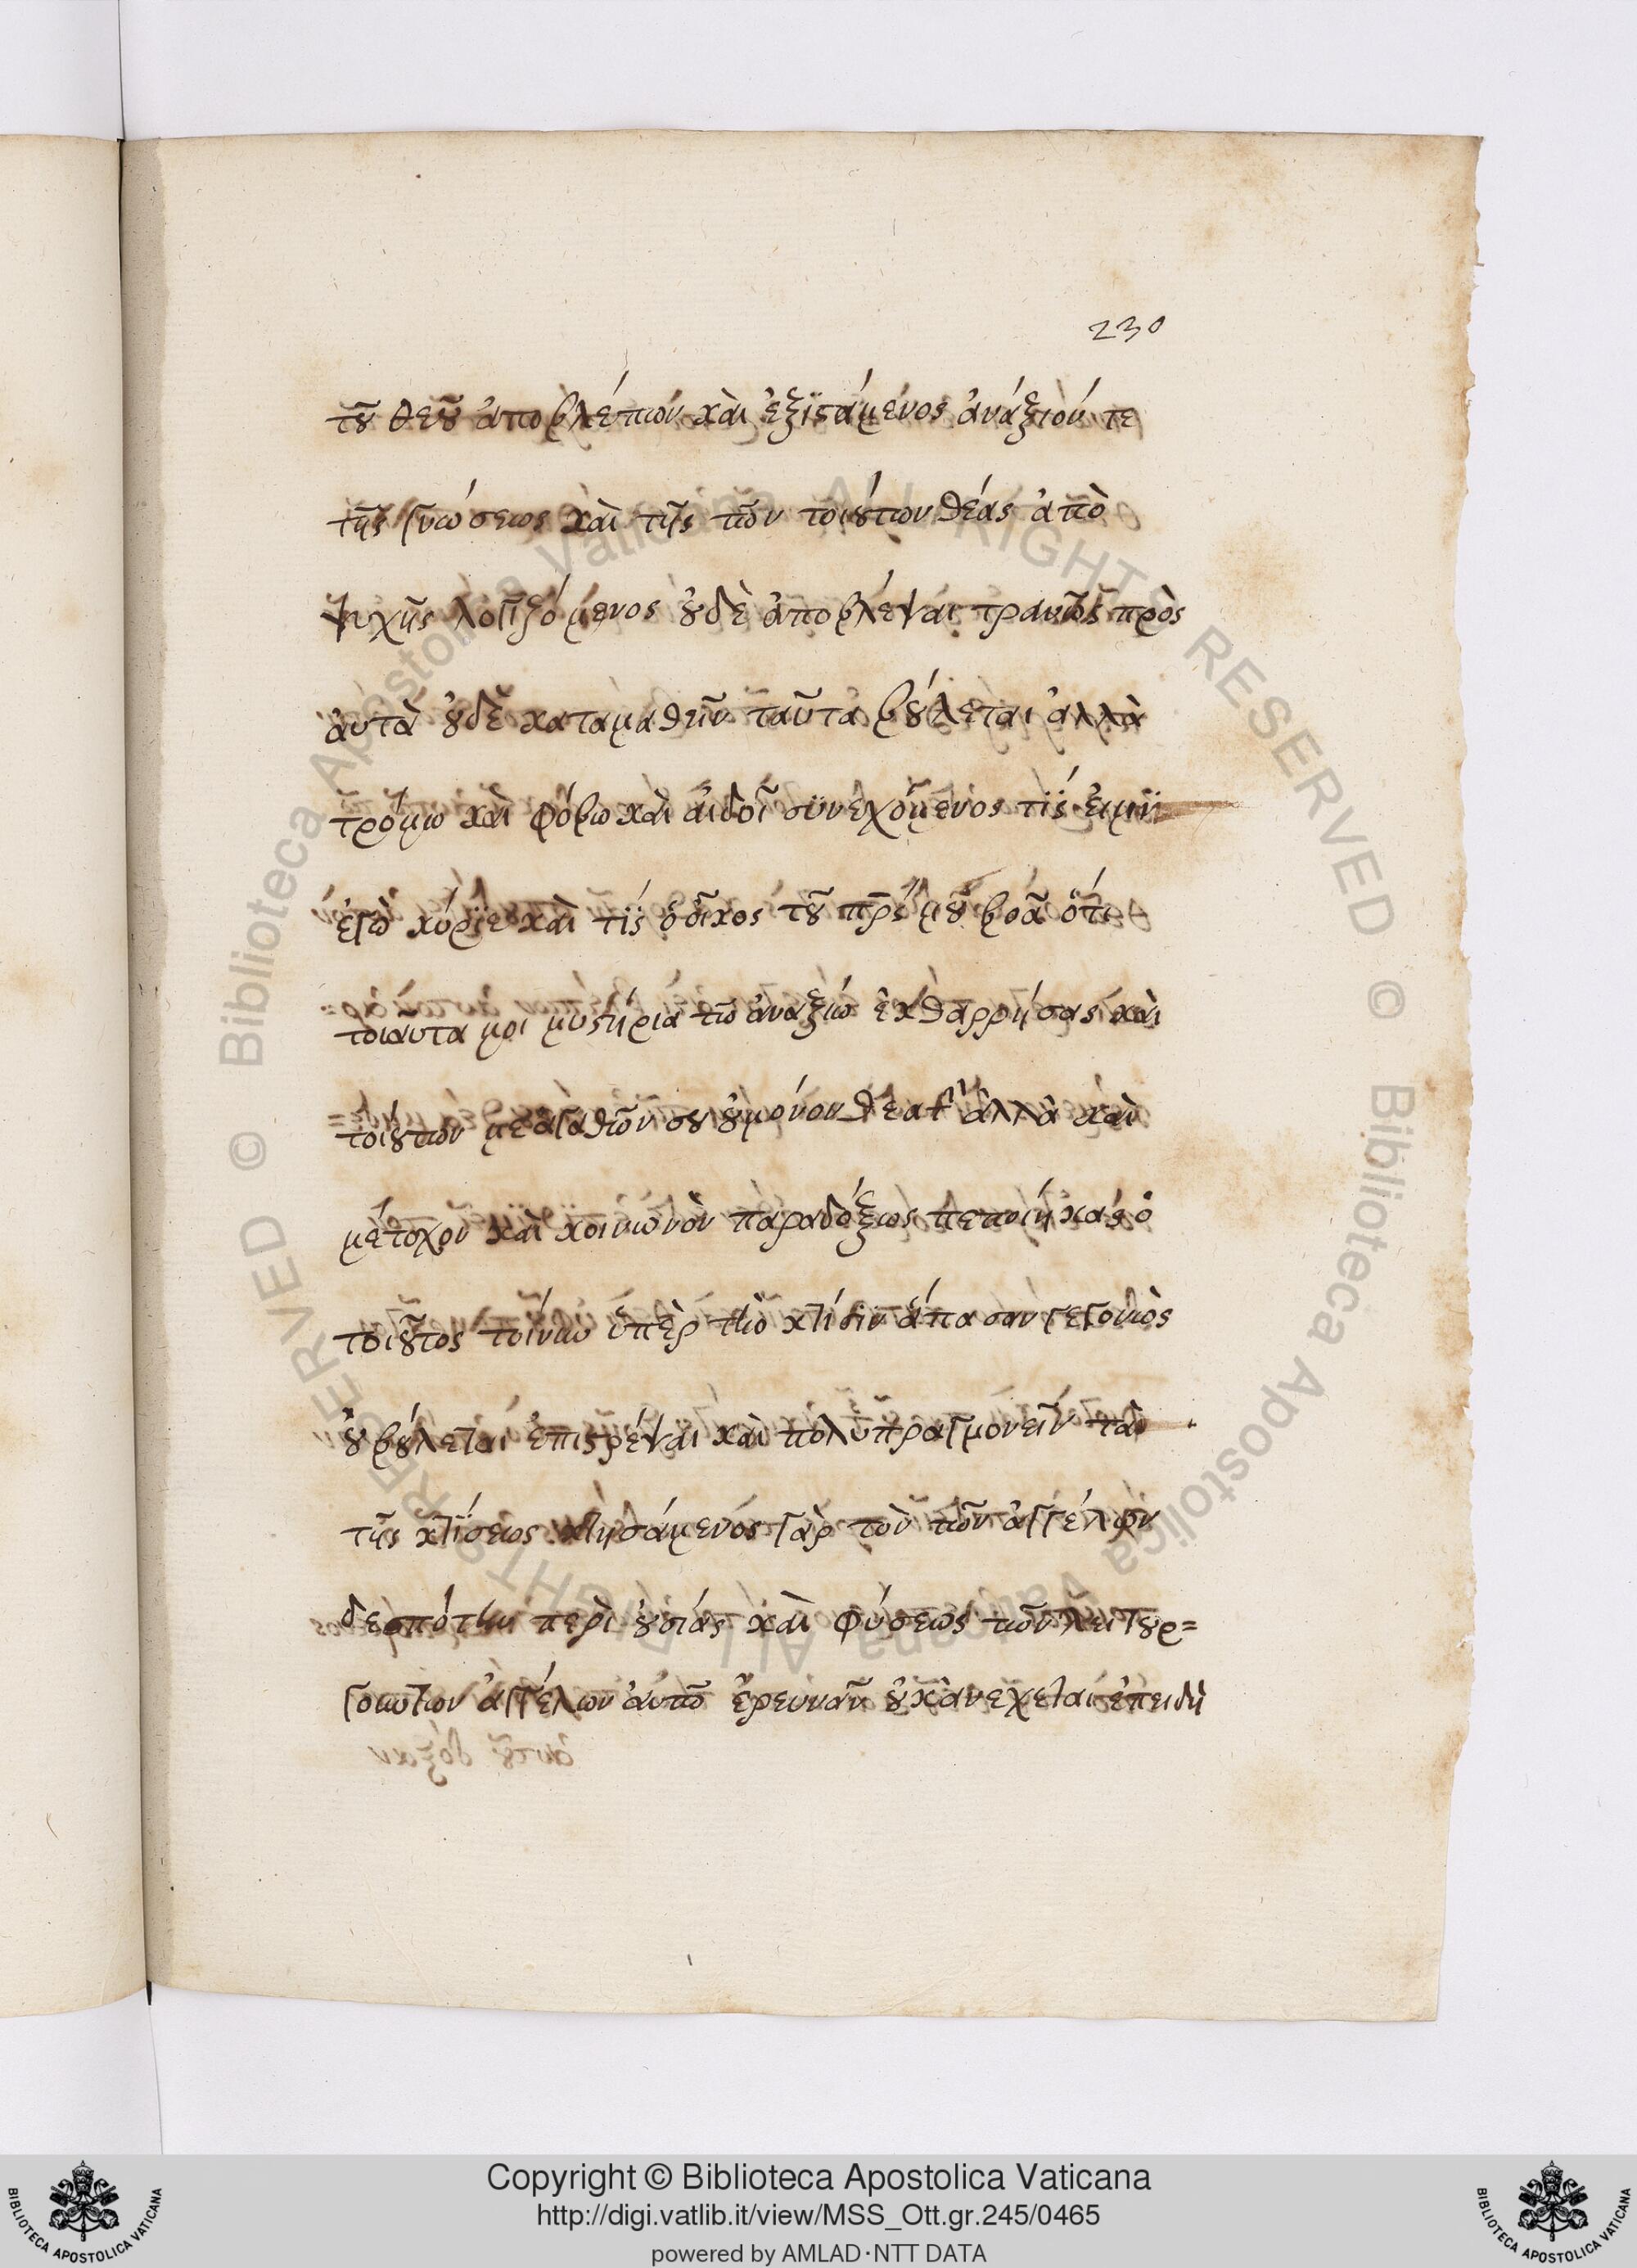 230
τοῦ θεοῦ ἀποβλέπων καὶ ἐξϊστάμενος ἀνάξιόν τε
τῆς γνώσεως καὶ τῆς τῶν τοιούτων θέας ἀπὸ
ψυχῆς λογιζόμενος οὐδὲ ἀποβλέψαι τρανῶς πρὸς
ἀυτὰ οὐδὲ καταμαθεῖν ταῦτα βούλεται ἀλλὰ
τρόμω καὶ φόβω καὶ αἰδοῖ συνεχόμενος τίς εἰμϊ
ἐγὼ κύριε καὶ τίς ὁ οἶκος τοῦ πρς μοῦ βοᾶ ὅτι
τοιαῦτα μοι μυστήρια τῶ ἀναξίω ἐκθαρρήσας καὶ
τοιούτων με ἀγαθῶν σου οὐ μόνον θεατὴν ἀλλὰ καὶ
μέτοχον καὶ κοινωνὸν παραδόξως πεποίηκας ὁ
τοιοῦτος τοίνυν ὑπὲρ τὴν κτίσϊν ἅπασαν γεγονὼς
οὐ βούλεται ἐπιστρέψαι καὶ πολυπραγμονεῖν τὰ
τῆς κτίσεως κτησάμενος γὰρ τὸν τῶν ἀγγέλων
δεσπότην περὶ οὐσίας καὶ φύσεως τῶν λειτουρ=
γούντων ἀγγέλων ἀυτῶ ἐρευνᾶν οὐκ ἀνεχεται ἐπειδὴ
Copyright © Biblioteca Apostolica Vaticana
http://digi.vatlib.it/view/MSS_Ott.gr.245/0465
powered by AMLAD·NTT DATA
BIBLIOTECA APOSTOLICA VATICANA
BIBLIOTECA APOSTOLICA VATICANA
© Biblioteca Apostolica Vaticana ALL RIGHTS RESERVED © Biblioteca Apostolica Vaticana ALL RIGHTS RESERVED